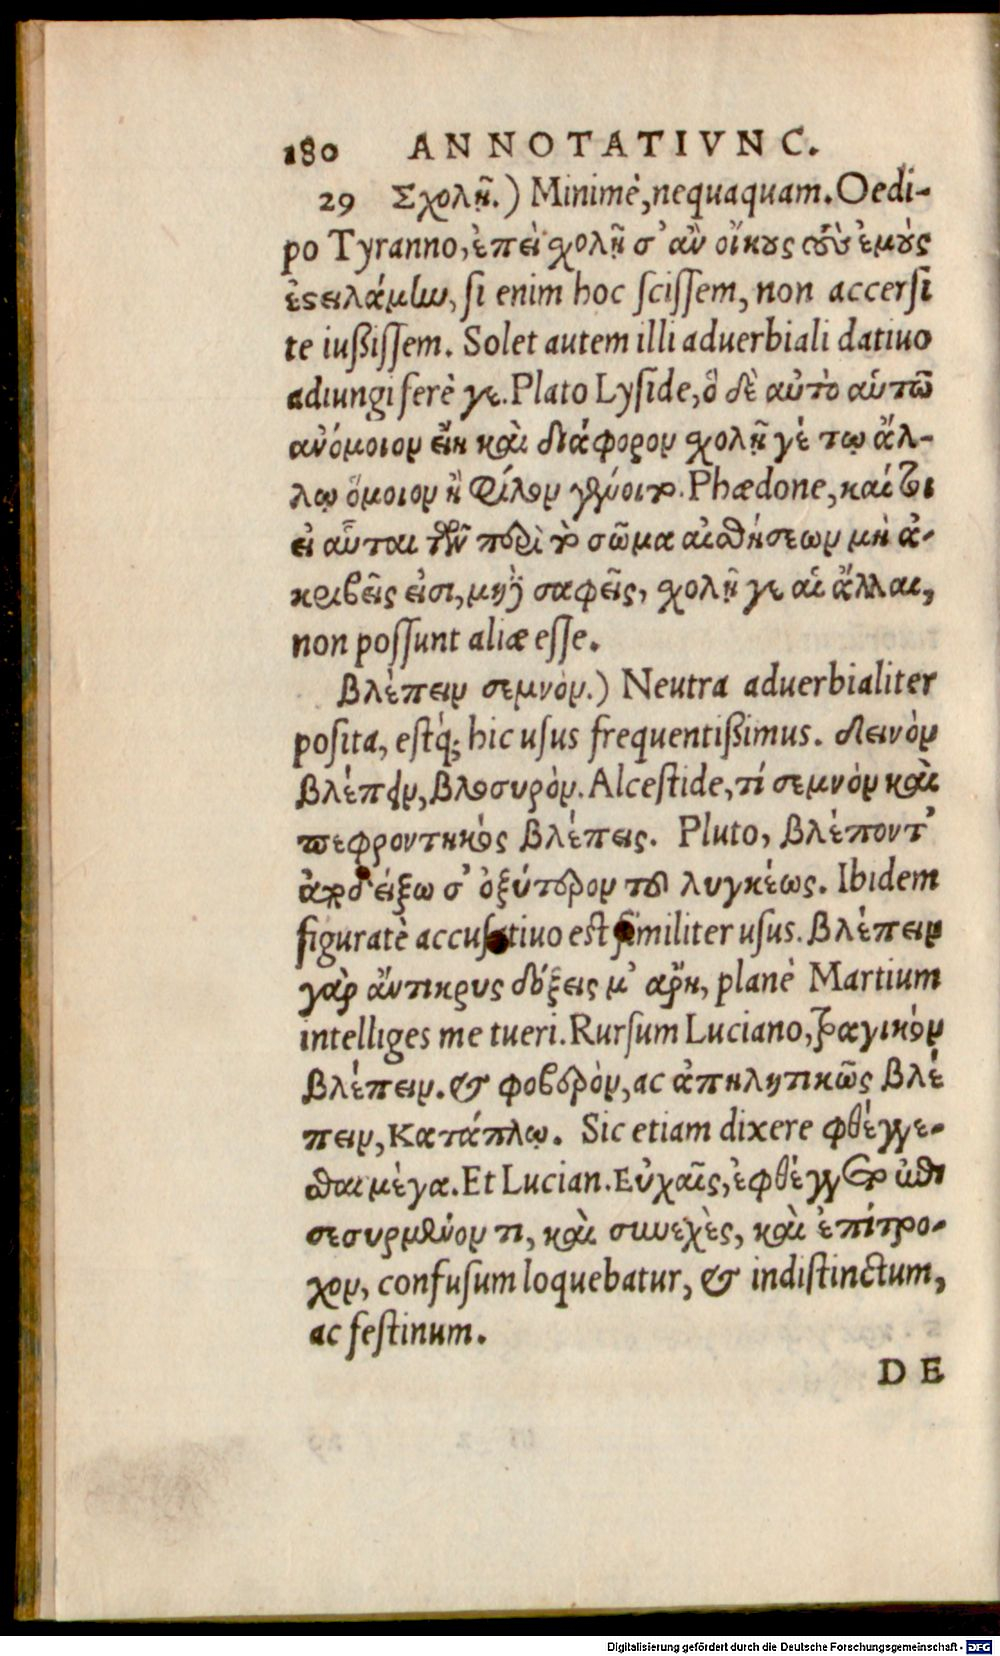 180 ANNOTATIVNC.
29 Σχολῇ.) Minimè, nequaquam. Oedi-
po Tyranno, ἐπεὶ σχολῇ σ' ἂν οἴκους οὓς ἐμοὺς
ἐστειλάμην, ſi enim hoc ſciſſem, non accerſi
te iuſsiſſem. Solet autem illi aduerbiali datiuo
adiungi ferè γε. Plato Lyſide, ὃ δὲ αὐτὸ αὑτῷ
ἀνόμοιον εἴη καὶ διάφορον σχολῇ γέ τῳ ἄλ-
λῳ ὅμοιον ἢ φίλον γένοιτο. Phædone, καί τοι
εἰ αὗται τῶν περὶ τὸ σῶμα αἰσθήσεων μὴ ἀ-
κριβεῖς εἰσι, μηδὲ σαφεῖς, σχολῇ γε αἱ ἄλλαι,
non poſſunt aliæ eſſe.
Βλέπειν σεμνὸν.) Neutra aduerbialiter
poſita, eſtq́; hic uſus frequentiſsimus. δεινὸν
βλέπειν, βλοσυρὸν. Alceſtide, τί σεμνὸν καὶ
πεφροντικὸς βλέπεις. Pluto, βλέποντ'
ἀποδείξω σ' ὀξύτερον τοῦ λυγκέως. Ibidem
figuratè accuſatiuo eſt ſimiliter uſus. Βλέπειν
γὰρ ἄντικρυς δόξεις μ' ἄρη, planè Martium
intelliges me tueri. Rurſum Luciano, τραγικὸν
βλέπειν. & φοβερὸν, ac ἀπηλητικῶς βλέ
πειν, Κατάπλῳ. Sic etiam dixere φθέγγε-
σθαι μέγα. Et Lucian. Εὐχαῖς, ἐφθέγγετο
σεσυρμένον τι, καὶ συνεχὲς, καὶ ἐπίτρο-
χον, confuſum loquebatur, & indiſtinctum,
ac feſtinum.
DE
Digitalisierung gefördert durch die Deutsche Forschungsgemeinschaft - DFG